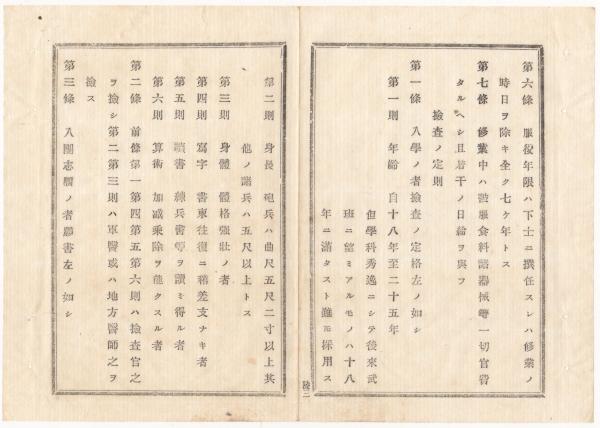 第六條 服役年限ハ下士ニ撰任スレハ修業ノ
時日ヲ除キ全ク七ケ年トス
第七條 修業中ハ被服食料諸器械等一切官費
タルヘシ且若干ノ日給ヲ與フ
檢查ノ定則
第一條 入學ノ者檢查ノ定格左ノ如シ
第一則 年齡 自十八年至二十五年
但學科秀逸ニシテ後來武
班ニ望ミアルモノハ十八
年ニ滿タスト雖モ採用ス
陸二
第二則 身長 砲兵ハ曲尺五尺二寸以上其
他ノ諸兵ハ五尺以上トス
第三則 身體 體格強壯ノ者
第四則 寫字 書柬往復ニ稍差支ナキ者
第五則 讀書 練兵書等ヲ讀ミ得ル者
第六則 算術 加減乘除ヲ能クスル者
第二條 前條第一第四第五第六則ハ檢查官之
ヲ撿シ第二第三則ハ軍醫或ハ地方醫師之ヲ
撿ス
第三條 入團志願ノ者願書左ノ如シ